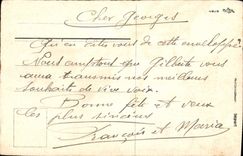 Cher Georges
Qu'en dites vous de cette enveloppe
Nous comptons que Gilberte vous
aura transmis nos meilleurs
souhaits de vive voix.
Bonne fête et vœux
les plus sincères
François et Maria